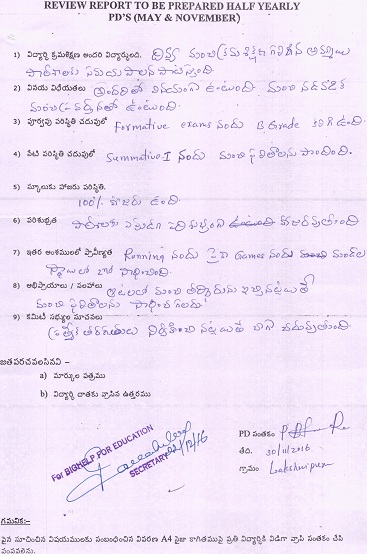 REVIEW REPORT TO BE PREPARED HALF YEARLY
PD'S (MAY & NOVEMBER)
1) విద్యార్థి క్రమశిక్షణ అందరి విద్యార్థులంది. దివ్య మంచి క్రమశిక్షణ కలిగిన అమ్మాయి
పాఠశాలకు సమయపాలన పాటిస్తుంది
2) వినయ విధేయతలు అందరితో వినయంగా ఉంటుంది. మంచి నడవడిక
మంచి ప్రవర్తనతో ఉంటుంది.
3) పూర్వపు పరిస్థితి చదువులో Formative exams నందు B Grade కలిగి ఉంది.
4) నేటి పరిస్థితి చదువులో Summative-I నందు మంచి ఫలితాలను పొందింది.
5) స్కూలుకు హాజరు పరిస్థితి.
100% హాజరు ఉంది.
6) పరిశుభ్రత పాఠశాలకు ఎప్పుడూ పరిశుభ్రంగా హాజరవుతుంది
7) ఇతర అంశములలో ప్రావీణ్యత Running నందు Games నందు మండల
స్థాయిలో సాధించింది.
8) అభిప్రాయాలు / సలహాలు ఆటలలో మంచి తర్ఫీదును ఇచ్చినట్లయితే
మంచి ఫలితాలను సాధించగలదు
9) కమిటీ సభ్యుల సూచనలు
ప్రత్యేక తరగతులు నిర్వహించినట్లయితే బాగా చదువుతుంది
జతపరచవలసినవి :-
a) మార్కుల పత్రము
b) విద్యార్థి దాతకు వ్రాసిన ఉత్తరము
For BIGHELP FOR EDUCATION
SECRETARY
PD సంతకం
తేది. 30/11/2016
గ్రామం Lakshmipuram
గమనిక:-
పైన సూచించిన విషయములకు సంబంధించిన వివరణ A4 సైజు కాగితముపై ప్రతి విద్యార్థికి విడిగా వ్రాసి సంతకం చేసి
పంపవలెను.